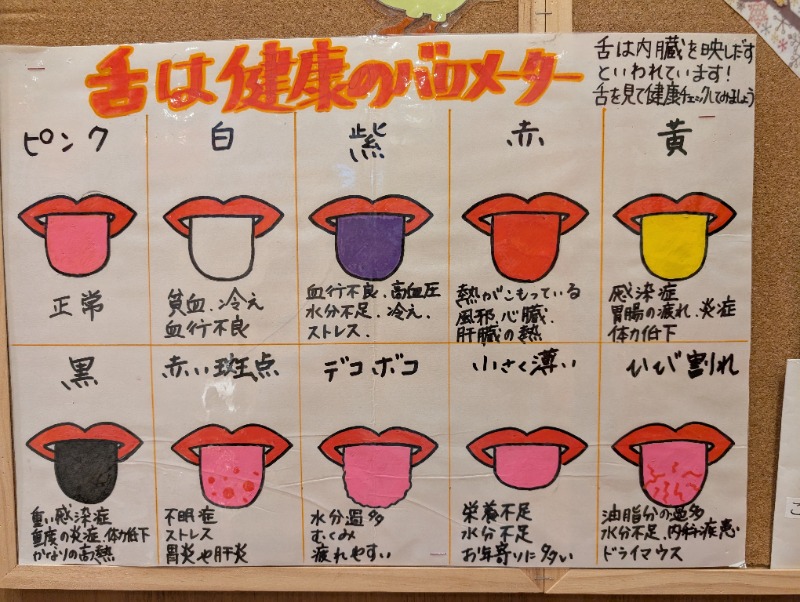 舌は健康のバロメーター
舌は内臓を映しだす
といわれています!
舌を見て健康チェックしてみましょう
ピンク
正常
白
貧血、冷え
血行不良
紫
血行不良、高血圧
水分不足、冷え、
ストレス、
赤
熱がこもっている
風邪、心臓、
肝臓の熱
黄
感染症
胃腸の疲れ、炎症
体力低下
黒
重い感染症
重度の炎症、体力低下
かなりの高熱
赤い斑点
不眠症
ストレス
胃炎や肝炎
デコボコ
水分過多
むくみ
疲れやすい
小さく薄い
栄養不足
水分不足
お年寄りに多い
ひび割れ
油脂分の過多
水分不足、内科疾患
ドライマウス